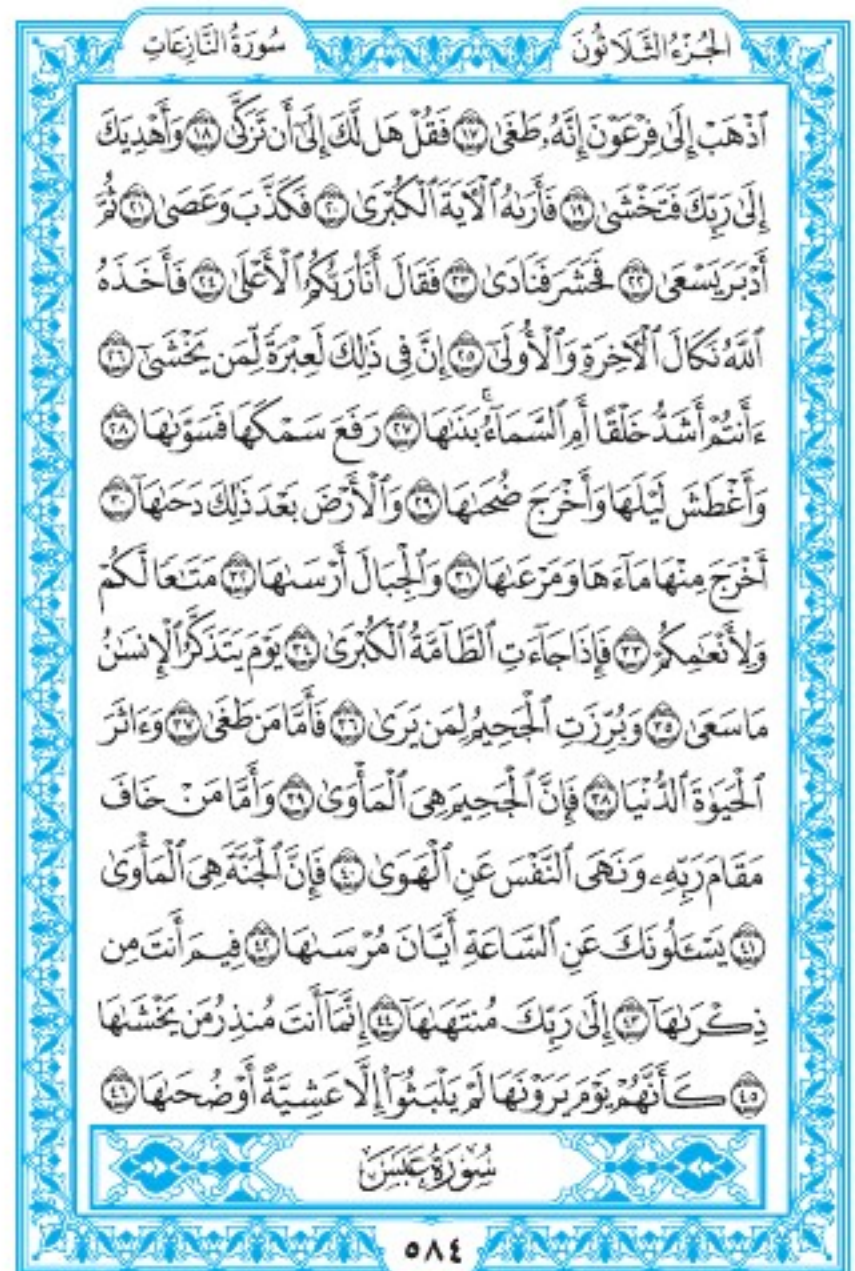 الجُزْءُ الثَّلَاثُونَ
سُورَةُ النَّازِعَاتِ
ٱذْهَبْ إِلَىٰ فِرْعَوْنَ إِنَّهُۥ طَغَىٰ ١٧ فَقُلْ هَل لَّكَ إِلَىٰٓ أَن تَزَكَّىٰ ١٨ وَأَهْدِيَكَ
إِلَىٰ رَبِّكَ فَتَخْشَىٰ ١٩ فَأَرَىٰهُ ٱلْأٓيَةَ ٱلْكُبْرَىٰ ٢٠ فَكَذَّبَ وَعَصَىٰ ٢١ ثُمَّ
أَدْبَرَ يَسْعَىٰ ٢٢ فَحَشَرَ فَنَادَىٰ ٢٣ فَقَالَ أَنَا۠ رَبُّكُمُ ٱلْأَعْلَىٰ ٢٤ فَأَخَذَهُ
ٱللَّهُ نَكَالَ ٱلْأٓخِرَةِ وَٱلْأُولَىٰٓ ٢٥ إِنَّ فِى ذَٰلِكَ لَعِبْرَةً لِّمَن يَخْشَىٰٓ ٢٦
ءَأَنتُمْ أَشَدُّ خَلْقًا أَمِ ٱلسَّمَآءُ ۚ بَنَىٰهَا ٢٧ رَفَعَ سَمْكَهَا فَسَوَّىٰهَا ٢٨
وَأَغْطَشَ لَيْلَهَا وَأَخْرَجَ ضُحَىٰهَا ٢٩ وَٱلْأَرْضَ بَعْدَ ذَٰلِكَ دَحَىٰهَآ ٣٠
أَخْرَجَ مِنْهَا مَآءَهَا وَمَرْعَىٰهَا ٣١ وَٱلْجِبَالَ أَرْسَىٰهَا ٣٢ مَتَٰعًا لَّكُمْ
وَلِأَنْعَٰمِكُمْ ٣٣ فَإِذَا جَآءَتِ ٱلطَّآمَّةُ ٱلْكُبْرَىٰ ٣٤ يَوْمَ يَتَذَكَّرُ ٱلْإِنسَٰنُ
مَا سَعَىٰ ٣٥ وَبُرِّزَتِ ٱلْجَحِيمُ لِمَن يَرَىٰ ٣٦ فَأَمَّا مَن طَغَىٰ ٣٧ وَءَاثَرَ
ٱلْحَيَوٰةَ ٱلدُّنْيَا ٣٨ فَإِنَّ ٱلْجَحِيمَ هِىَ ٱلْمَأْوَىٰ ٣٩ وَأَمَّا مَنْ خَافَ
مَقَامَ رَبِّهِۦ وَنَهَى ٱلنَّفْسَ عَنِ ٱلْهَوَىٰ ٤٠ فَإِنَّ ٱلْجَنَّةَ هِىَ ٱلْمَأْوَىٰ
٤١ يَسْـَٔلُونَكَ عَنِ ٱلسَّاعَةِ أَيَّانَ مُرْسَىٰهَا ٤٢ فِيمَ أَنتَ مِن
ذِكْرَىٰهَآ ٤٣ إِلَىٰ رَبِّكَ مُنتَهَىٰهَآ ٤٤ إِنَّمَآ أَنتَ مُنذِرُ مَن يَخْشَىٰهَا
٤٥ كَأَنَّهُمْ يَوْمَ يَرَوْنَهَا لَمْ يَلْبَثُوٓا۟ إِلَّا عَشِيَّةً أَوْ ضُحَىٰهَا ٤٦
سُورَةُ عَبَسَ
٥٨٤